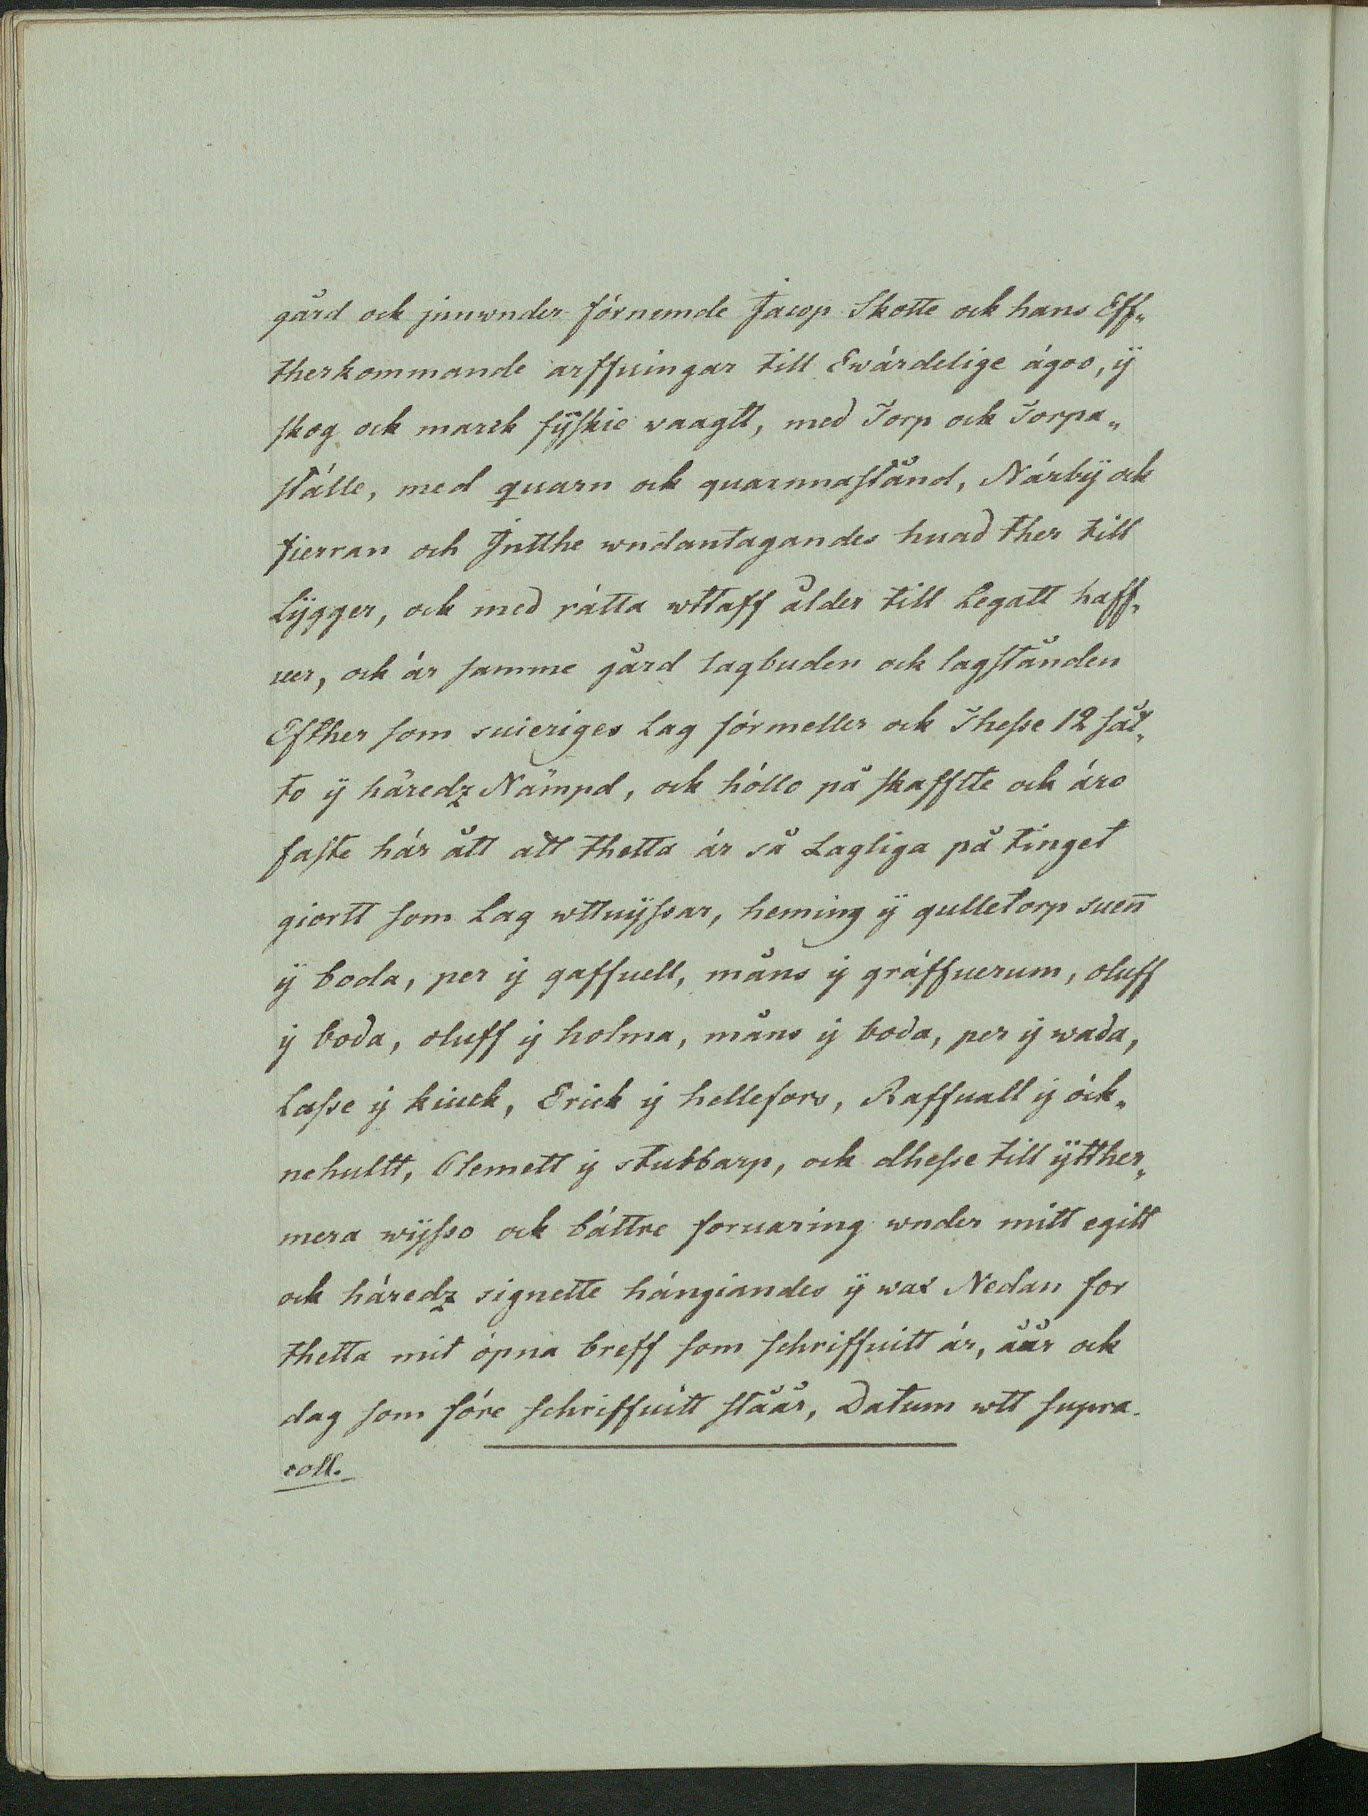 gård ock jnnwnder fórnemde Jacop Skotte ock hans Eff„
therkommande arffuingar till Ewárdelige ágoo, ÿ
skog ock marck fÿskie vaagtt, med Torp ock Torpa„
stálle, med quarn ock quarnnastånd, Nárbÿ ock
fierran och Jntthe wndantagandes huad ther till
Lÿgger, ock med rátta wttaff ålder till Legatt haff„
uer, ock ár samme gård lagbuden ock lagstånden
Efther som suieriges Lag fórmeller ock Thesse 12 såt„
to ÿ häredz Nämpd, ock hóllo på skafftte ock áro
faste hárått att thetta ár så Lagliga på tinget
giortt som Lag wttuÿssar, heming ÿ gulletorp suen̄
ÿ boda, per ÿ gaffuell, måns ÿ gráffuerum, oluff
ÿ boda, oluff ÿ holma, måns ÿ boda, per ÿ wada,
Lasse ÿ kiuck, Erick ÿ hellefors, Raffuall ÿ óck„
nehultt, Clemett ÿ stubbarp, ock dhesse till ÿtther„
mera wÿsso ock báttre foruaring wnder mitt egitt
ock háredz signette hángiandes ÿ wax Nedan for
thetta mit ópna breff som schriffuitt ár, åår ock
dag som fóre schriffuitt stáár, Datum wtt supra.
coll.